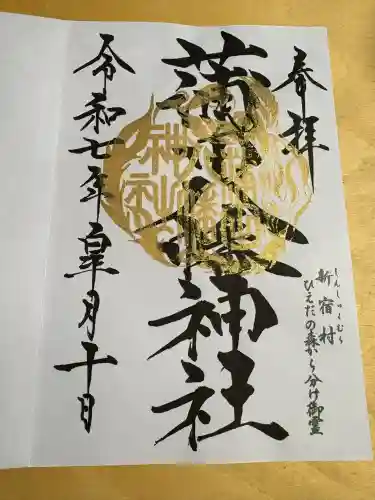 奉拝
蒲田八幡神社
令和七年皐月十日
しんしゅくむら
新宿村
ひえだの森から分け御霊